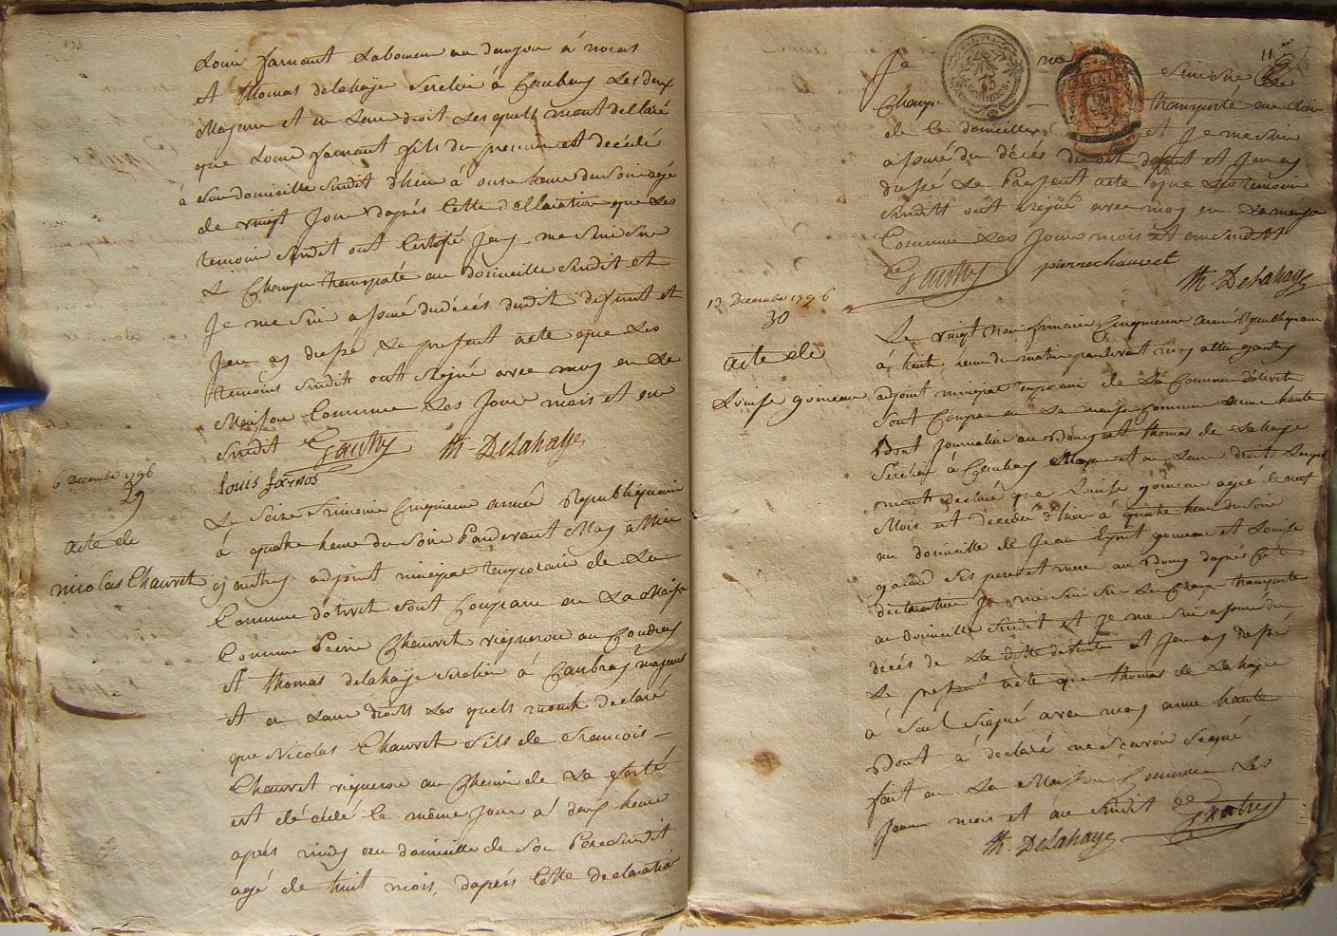 Louis farnout Laboureur au donjon à nous
et thomas delahaye Serclier à Caubray Les deux
Majeurs et en Leur droit Lesquels mont dellaré
que Louis farnout fils du presant est décédé
à Son domicille Susdit d'hier à onze heure du Soir agé
de vingt Jour daprés Cette dellaration que Les
temoins Susdit ont Certifié Jay me Suis Sur
Le Champ transporté au domicille Susdit et
Je me Suis assuré du décés dudit defunt et
Jen ay dressé Le present acte que Les
temoins Susdit ont Signé avec moy en La
Maison Commune Les Jour mois et an
Susdit Gauthy th-DeLahaye
Louis farnos
6 Decembre 1796
29
acte de
nicolas Chauvet
Le Seize frimaire Cinquieme année Republiquain
à quatre heure du Soir Pardevant Moy
adjoint municipal temporaire de La
Commune dolivet Sont Comparu en La Maison
Commune Peire Chauvet vigneron au Coudray
et thomas delahaye Serclier à Caubray majeurs
et en Leur droits Les quels mont declaré
que Nicolas Chauvet fils de francois
Chauvet vigneron au Chemin de La ferté
est décédé le même Jour à deux heure
aprés midy au domicille de Son Pere Susdit
agé de huit mois, daprés Cette declaration
11
Je me suis Sur Le
Champ transporté au dom
de Ce domicille et Je me Suis
assuré du décés dudit defunt et Jen ay
dressé Le Present acte que Les temoins
Susdit ont Signé avec moy en La maison
Commune Les Jours mois et an Susdit
Gauthy pierre chauvet
th-DeLahaye
19 Decembre 1796
30
acte de
Louise goineau
Le vingt neuf frimaire Cinquieme année Republiquain
à huit heure du matin pardevant moy
adjoint municipal temporaire de La Commune dolivet
Sont Comparu en La maison Commune anne haute
Rdont Journaliere au Bourg et thomas de Lahaye
Serclier à Caubray Majeur et en Leur droit Lesquels
mont declaré que Louise goineau agée de neuf
Mois est décédée d'hier à quatre heure du Soir
au domicille de Jean goineau et Louise
Ses pere et mere au Bourg daprés Cette
declaration Je me Suis Sur Le Champ transporté
au domicille Susdit et Je me Suis assuré du
décés de La ditte defunte et Jen ay dressé
Le present acte que thomas de Lahaye
à Seul Signé avec moy anne haute
Rdont à declaré ne Scavoir Signé
fait en La Maison Commune Les
Jour mois et an Susdit Gauthy
th-DeLahaye